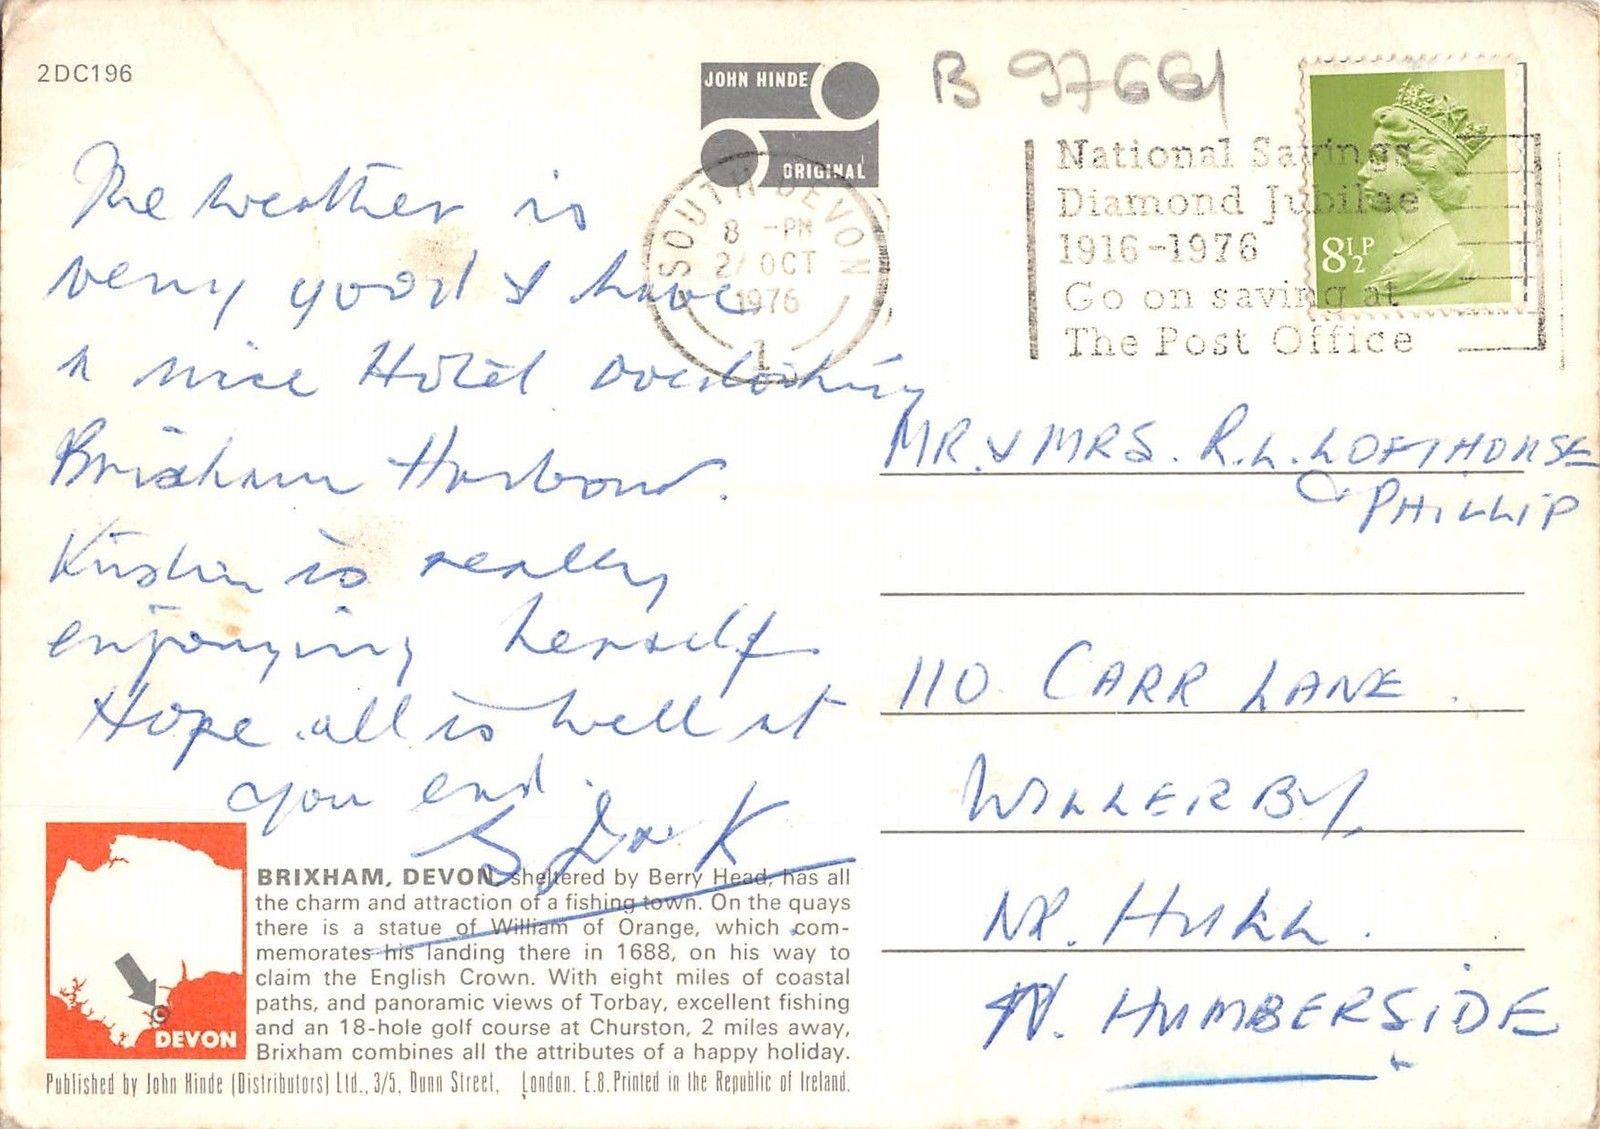 2DC196
JOHN HINDE
ORIGINAL
B 97661
SOUTH DEVON
8 -PM
2 OCT
1976
1
National Savings
Diamond Jubilee
1916-1976
Go on saving at
The Post Office
8½P
The weather is
very good & have
a nice Hotel overlooking
Brixham Harbour.
is really
enjoying herself
Hope all is well at
you end.
MR. & MRS. R.L. LOFTHOUSE
PHILLIP
110 CARR LANE.
WILLERBY,
NR. HULL.
N. HUMBERSIDE
BRIXHAM, DEVON, sheltered by Berry Head, has all
the charm and attraction of a fishing town. On the quays
there is a statue of William of Orange, which com-
memorates his landing there in 1688, on his way to
claim the English Crown. With eight miles of coastal
paths, and panoramic views of Torbay, excellent fishing
and an 18-hole golf course at Churston, 2 miles away,
Brixham combines all the attributes of a happy holiday.
DEVON
Published by John Hinde (Distributors) Ltd., 3/5, Dunn Street, London. E.8. Printed in the Republic of Ireland.